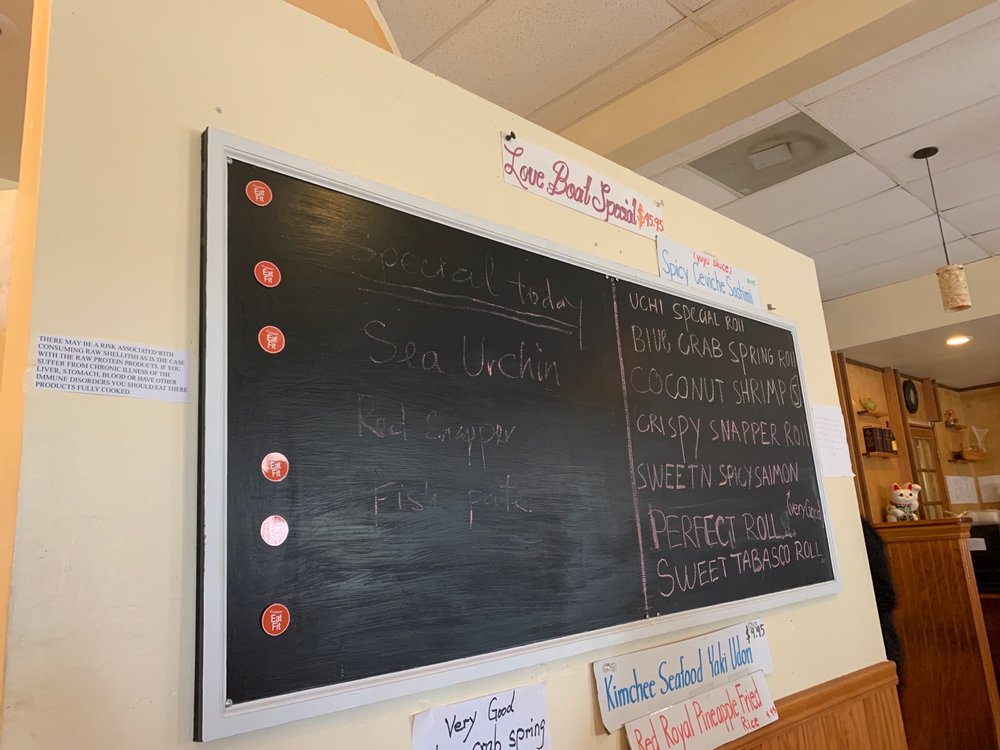 Love Boat Special $45.95
(YUYU SAUCE)
Spicy Ceviche Sashimi
Special today
Sea Urchin
Red Snapper
Fish pate
UCHI SPECIAL ROLL
BLUE CRAB SPRING ROLL
COCONUT SHRIMP (5)
CRISPY SNAPPER ROLL
SWEETN SPICY SALMON
(very Good)
PERFECT ROLL
SWEET TABASCO ROLL
Eat Fit
Eat Fit
Eat Fit
Eat Fit
Eat Fit
Eat Fit
THERE MAY BE A RISK ASSOCIATED WITH
CONSUMING RAW SHELLFISH AS IS THE CASE
WITH THE RAW PROTEIN PRODUCTS. IF YOU
SUFFER FROM CHRONIC ILLNESS OF THE
LIVER, STOMACH, BLOOD OR HAVE OTHER
IMMUNE DISORDERS YOU SHOULD EAT THESE
PRODUCTS FULLY COOKED.
$9.95
Kimchee Seafood Yaki Udon
Red Royal Pineapple Fried
Rice 9.95
Very Good
crab spring